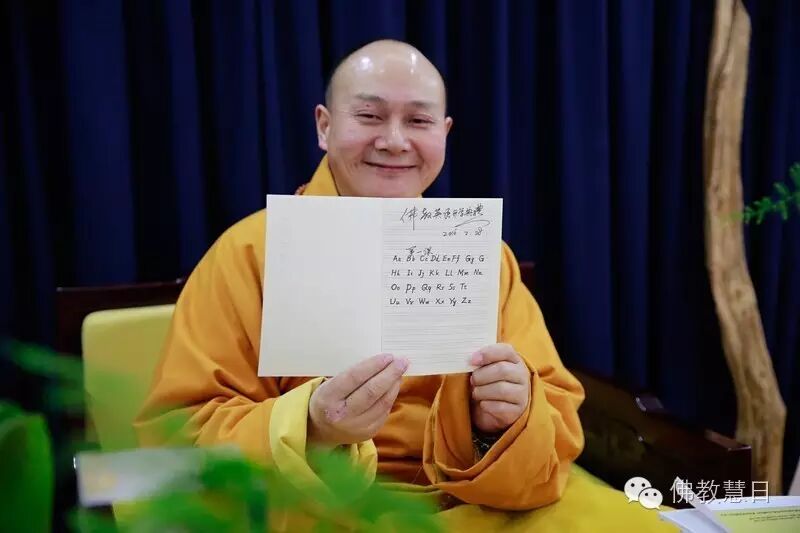 佛教英语开学典禮
2016 2.28
第一课
Aa Bb Cc Dd Ee Ff Gg G
Hh Ii Jj Kk Ll Mm Nn
Oo Pp Qq Rr Ss Tt
Uu Vv Ww Xx Yy Zz
佛教慧日